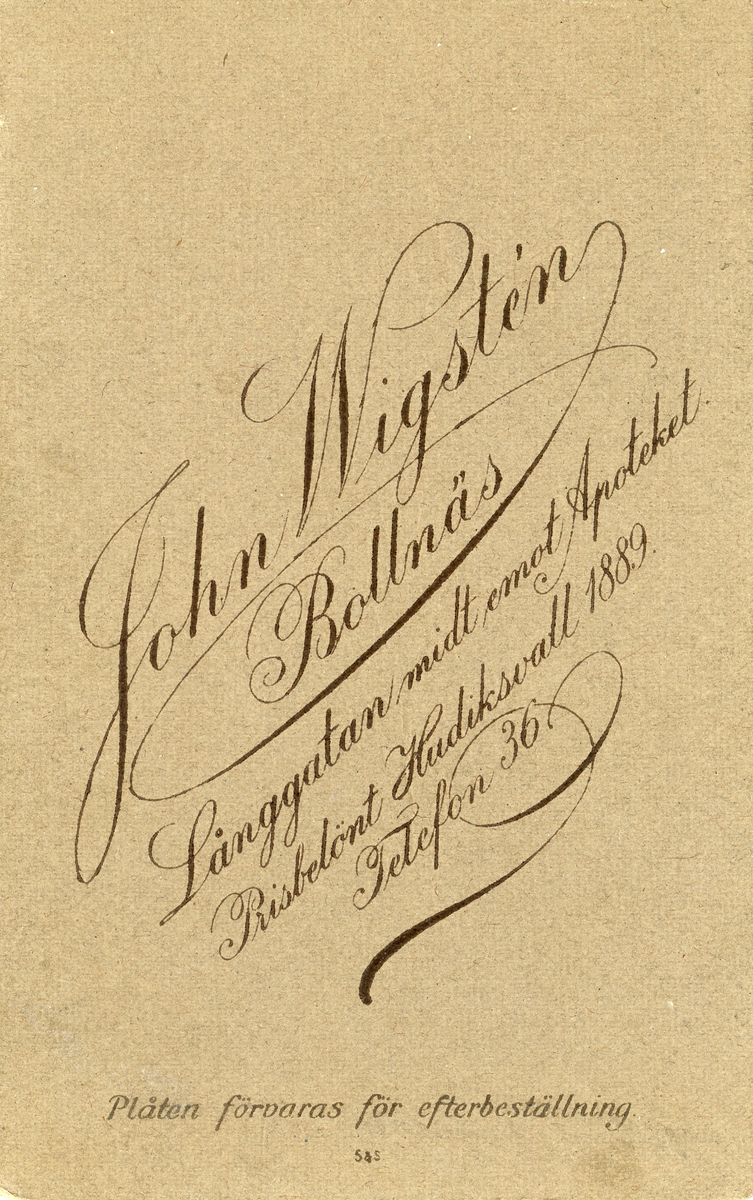 John Wigstén
Bollnäs
Långgatan midt emot Apoteket.
Prisbelönt Hudiksvall 1889.
Telefon 36
Plåten förvaras för efterbeställning.
S&S